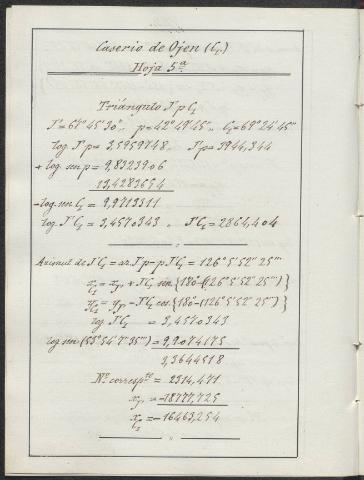 Caserio de Ojen (C₁)
Hoja 5ª
Triángulo J' p C₁
J'=67°45'30" „ p=42°49'45" „ C₁=69°24'45"
log. J'p = 3,5959748 „ J'p=3944,344
+ log. sen p = 9,8323906
13,4283654
- log. sen C₁ = 9,9713311
log. J'C₁ = 3,4570343 „ J'C₁=2864,404
Azimut de J'C₁ = az. J'p - p J'C₁ = 126°5'52",25"'
x = x + J'C₁ sen {180-(126°5'52",25"')}
y = y - J'C₁ cos. {180-(126°5'52",25"')}
log. J'C₁ = 3,4570343
log. sen (53°54'7",35"') = 9,9074175
3,3644518
Nº. correspte = 2314,471
x = -18777,725
x = -16463,254